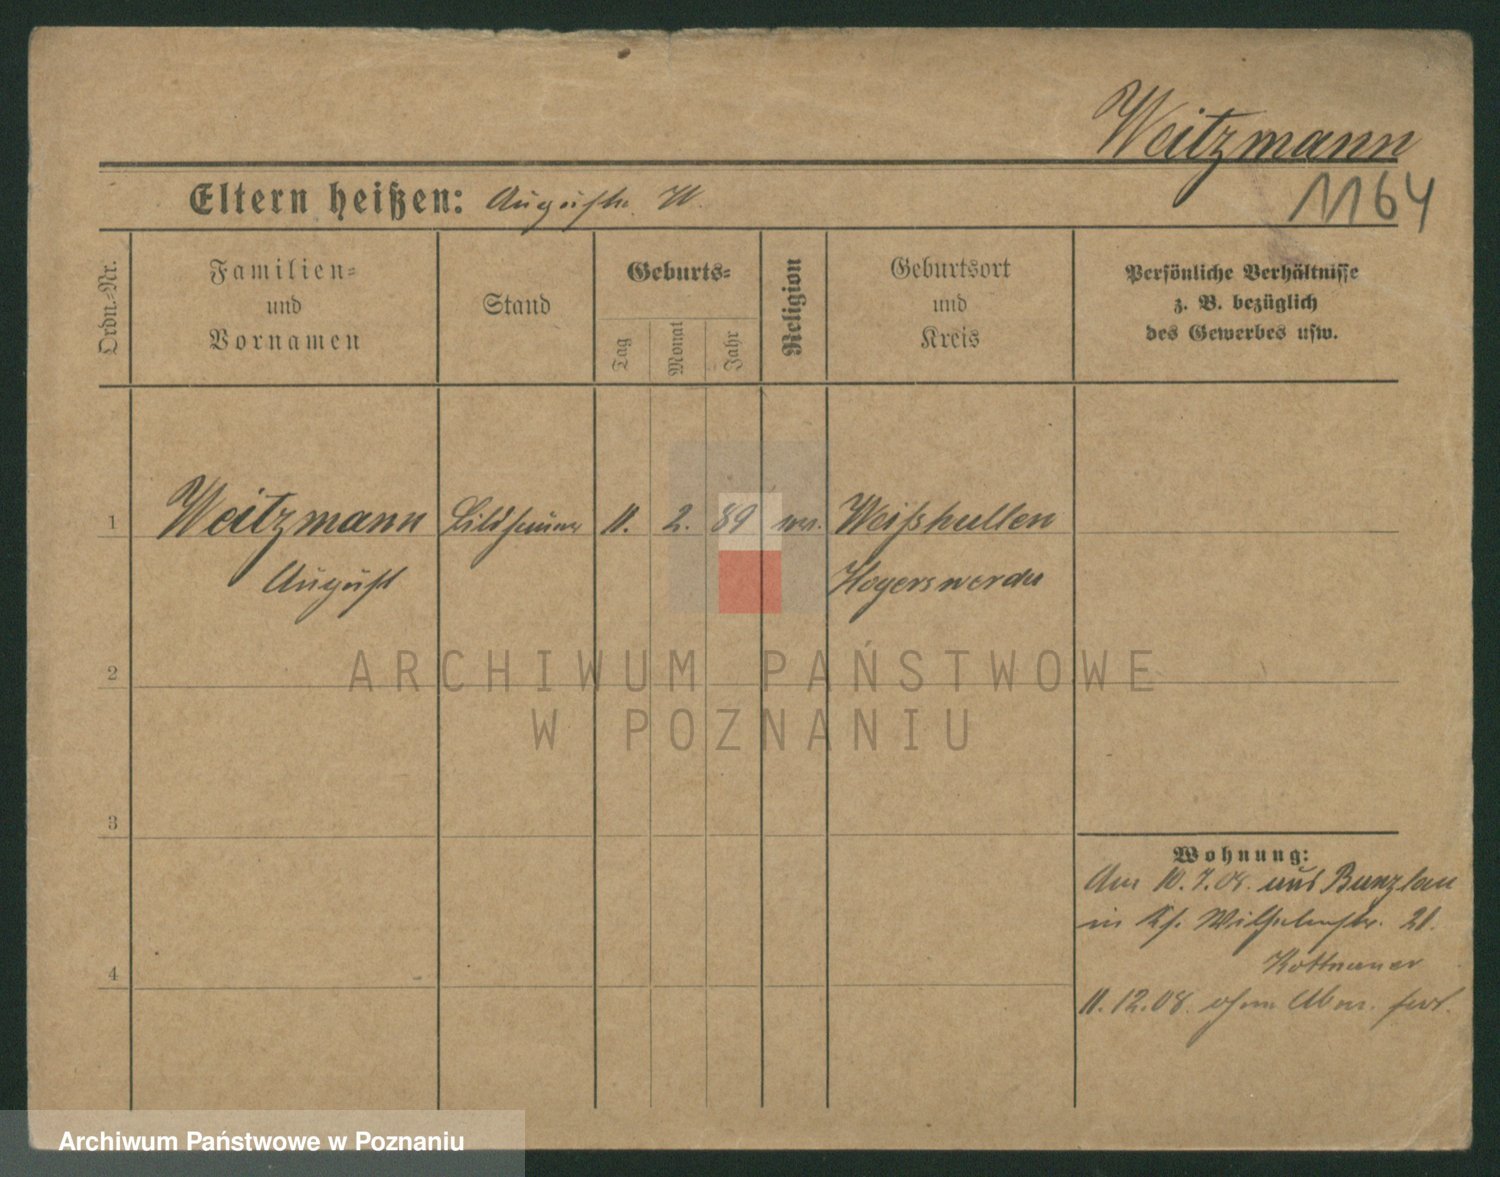 Weitzmann
1164
Eltern heißen: August W.
Ordn.-Nr.
Familien-
und
Vornamen
Stand
Geburts-
Tag
Monat
Jahr
Religion
Geburtsort
und
Kreis
Persönliche Verhältnisse
z. B. bezüglich
des Gewerbes usw.
1
Weitzmann
11. 2. 89
Weißkullen
August
Hoyerswerda
2
ARCHIWUM PAŃSTWOWE
W POZNANIU
3
Wohnung:
10.7.08. aus Bunzlau
in Wilhelmstr. 21.
4
11.12.08. ohne Abm. fort.
Archiwum Państwowe w Poznaniu